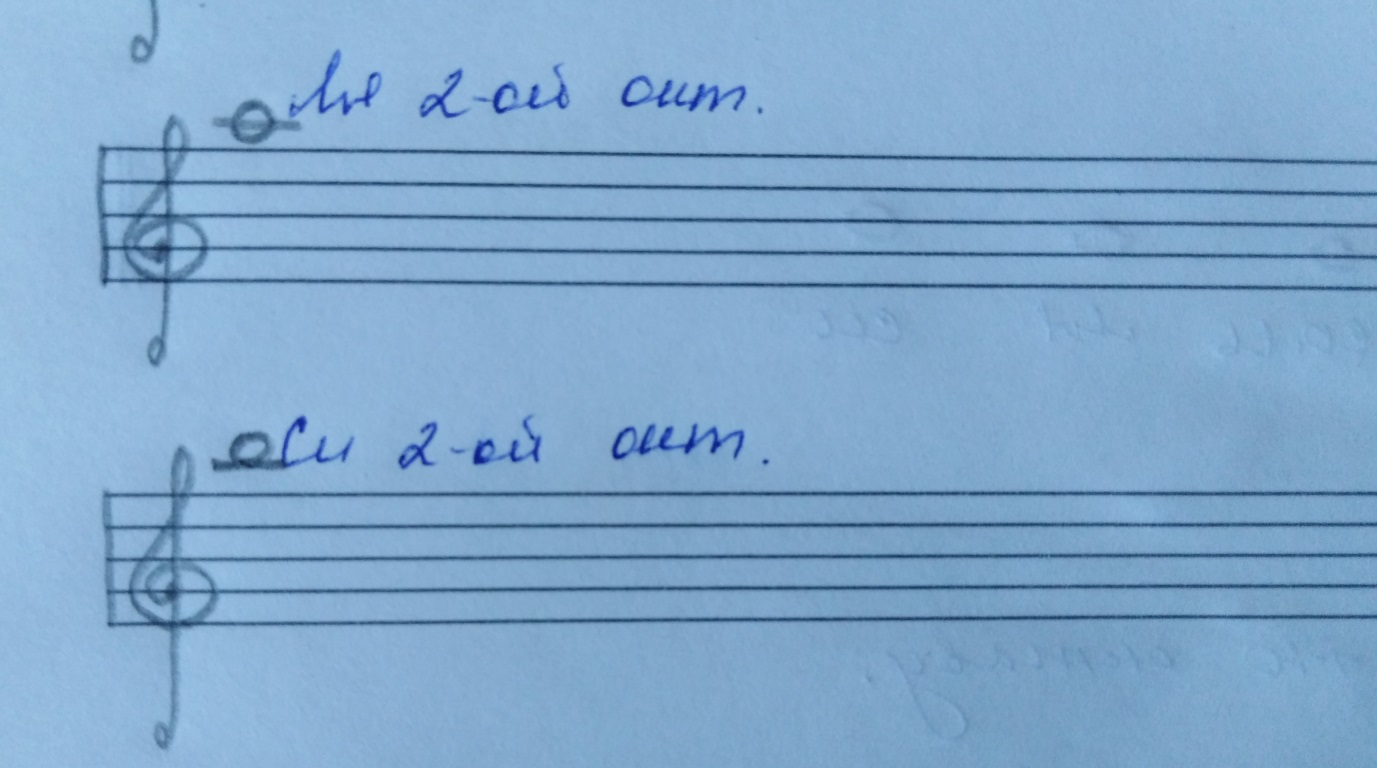 Ля 2-ой окт.
Си 2-ой окт.